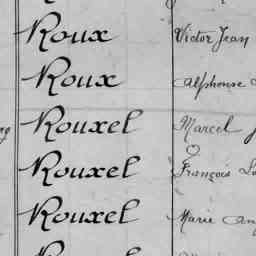 Roux Victor Jean
Roux Alphonse
Rouxel Marcel J
Rouxel François Lo
Rouxel Marie Ang